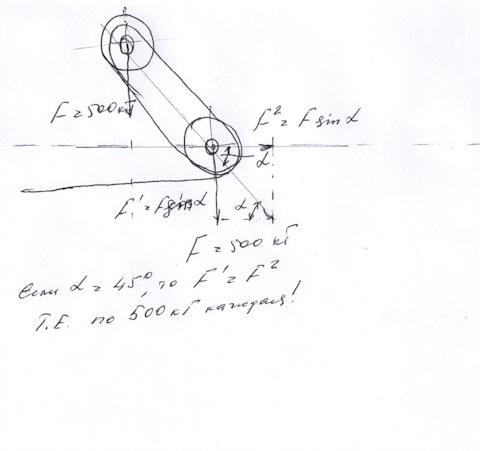 F = 500 кГ
F² = F sin α
α
F' = F sin α
α
F = 500 кГ
Если α = 45°, то F' = F²
Т.Е. по 500 кГ каждая!